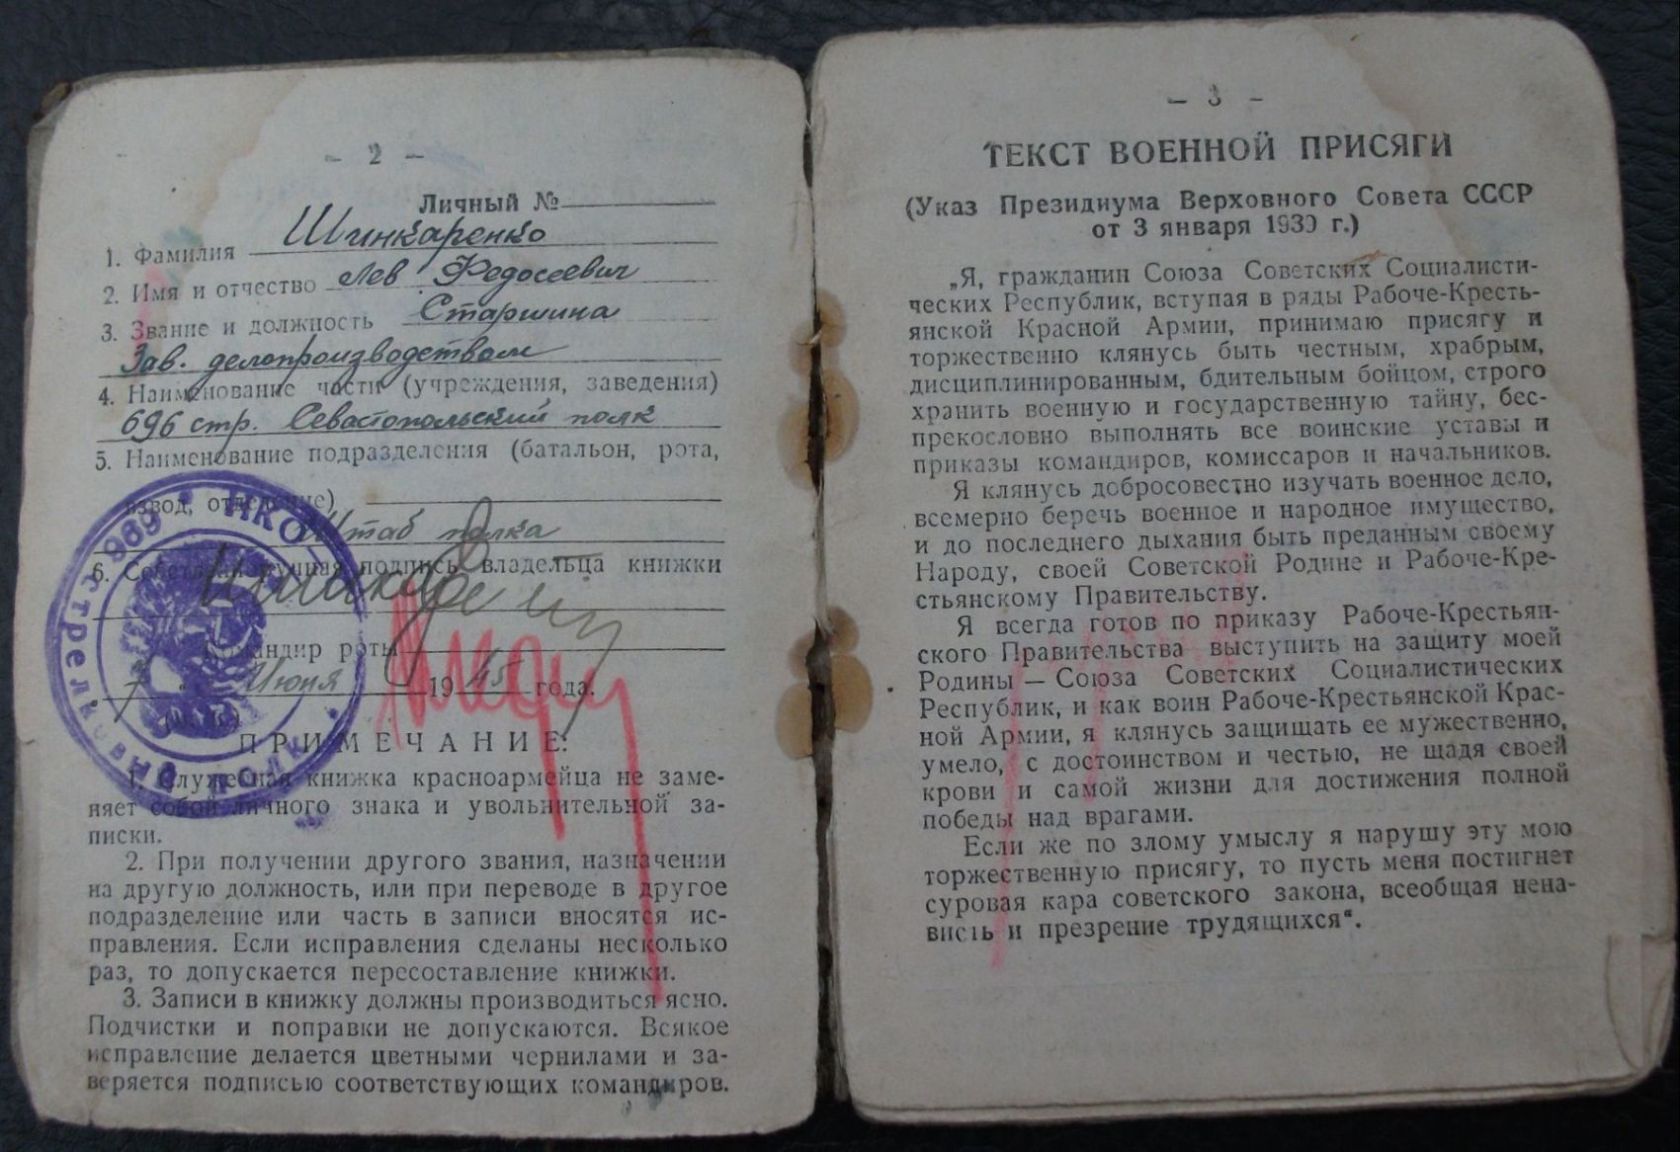 - 2 -
Личный №
1. Фамилия Шинкаренко
2. Имя и отчество Лев Федосеевич
3. Звание и должность Старшина
Зав. делопроизводством
4. Наименование части (учреждения, заведения)
696 стр. Севастопольский полк
5. Наименование подразделения (батальон, рота,
взвод, отделение)
Штаб полка
6. Собственноручная подпись владельца книжки
Командир роты
7 Июня 1945 года.
НКО 696 СТРЕЛКОВЫЙ ПОЛК
ПРИМЕЧАНИЕ:
1. Служебная книжка красноармейца не заме-
няет собой личного знака и увольнительной за-
писки.
2. При получении другого звания, назначении
на другую должность, или при переводе в другое
подразделение или часть в записи вносятся ис-
правления. Если исправления сделаны несколько
раз, то допускается пересоставление книжки.
3. Записи в книжку должны производиться ясно.
Подчистки и поправки не допускаются. Всякое
исправление делается цветными чернилами и за-
веряется подписью соответствующих командиров.
- 3 -
ТЕКСТ ВОЕННОЙ ПРИСЯГИ
(Указ Президиума Верховного Совета СССР
от 3 января 1939 г.)
„Я, гражданин Союза Советских Социалисти-
ческих Республик, вступая в ряды Рабоче-Кресть-
янской Красной Армии, принимаю присягу и
торжественно клянусь быть честным, храбрым,
дисциплинированным, бдительным бойцом, строго
хранить военную и государственную тайну, бес-
прекословно выполнять все воинские уставы и
приказы командиров, комиссаров и начальников.
Я клянусь добросовестно изучать военное дело,
всемерно беречь военное и народное имущество,
и до последнего дыхания быть преданным своему
Народу, своей Советской Родине и Рабоче-Кре-
стьянскому Правительству.
Я всегда готов по приказу Рабоче-Крестьян-
ского Правительства выступить на защиту моей
Родины — Союза Советских Социалистических
Республик, и как воин Рабоче-Крестьянской Крас-
ной Армии, я клянусь защищать ее мужественно,
умело, с достоинством и честью, не щадя своей
крови и самой жизни для достижения полной
победы над врагами.
Если же по злому умыслу я нарушу эту мою
торжественную присягу, то пусть меня постигнет
суровая кара советского закона, всеобщая нена-
висть и презрение трудящихся“.